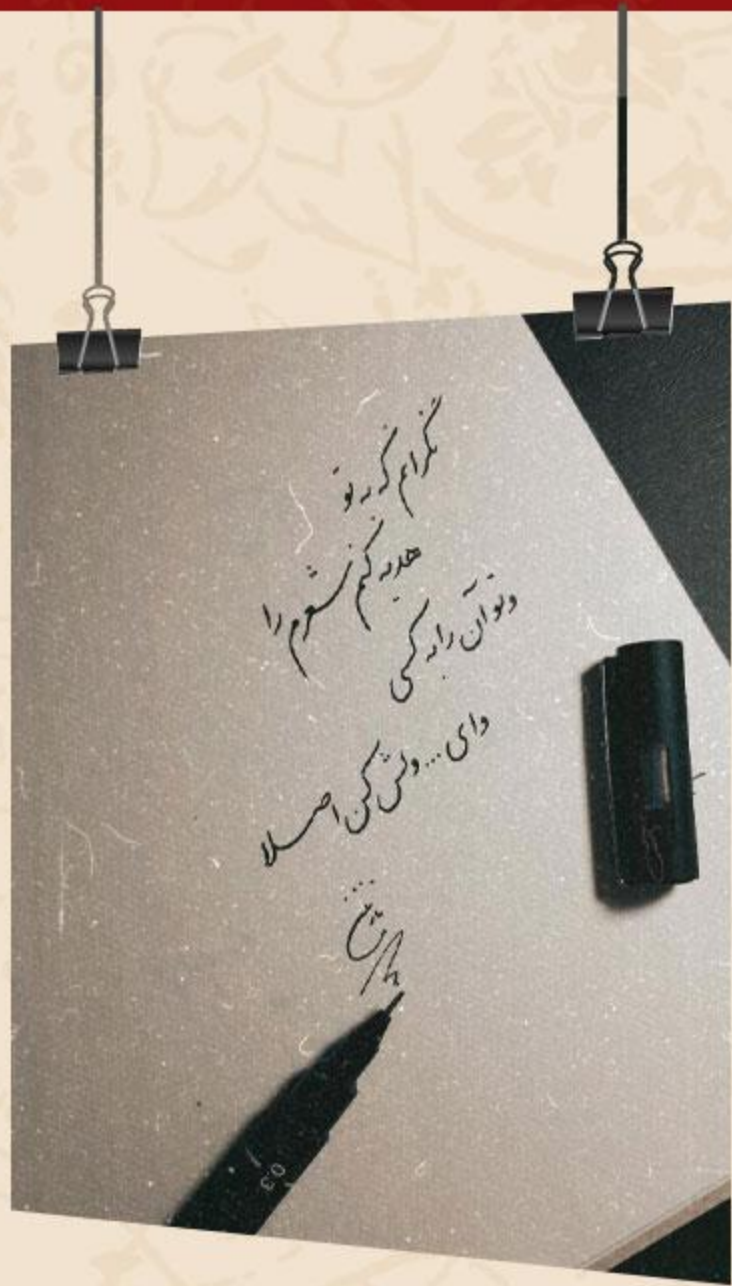 نگرانم که به تو
هدیه کنم شعرم را
و تو آن را به کسی
وای... ولش کن اصلا
0.3